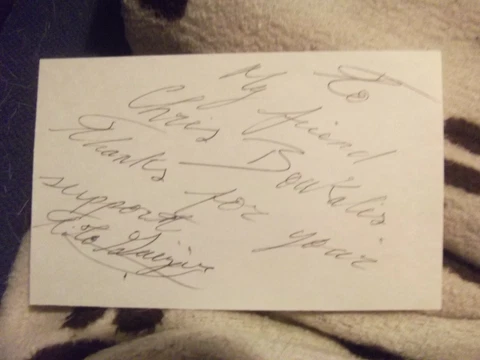 To
My friend
Chris Boukalis
Thanks for your
support
Tito